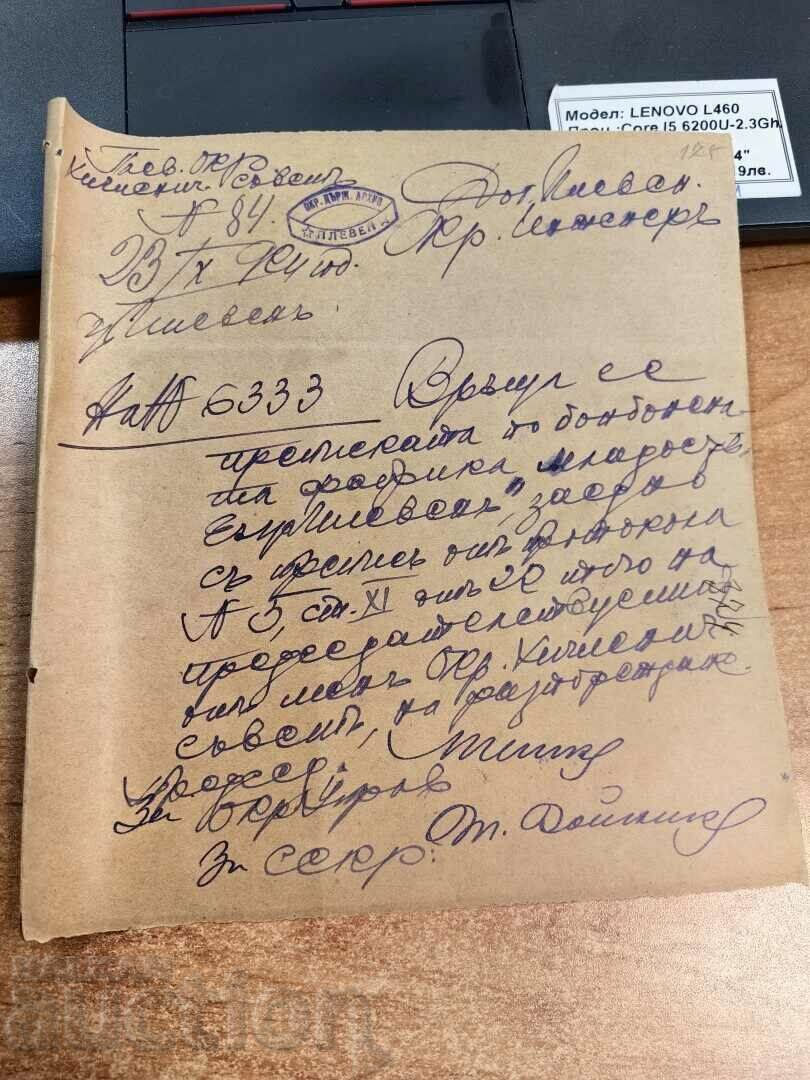 Модел: LENOVO L460
Проц.:Core I5 6200U-2.3Gh.
4"
9лв.
Плев. Окр.
Хигиенич. Съветъ
N 84.
23/IX 924 год.
гр. Плевенъ
ОКР. ДЪРЖ. АРХИВ
ПЛЕВЕН
До г. Плевен.
Окр. Инженеръ
На № 6333 Връща се
преписката по бонбонена
та фабрика "Младость,
гр. Плевенъ", заедно
съ препись отъ протокола
N 5, ст. XI отъ 22 того на
председателствуемия
отъ менъ Окр. Хигиенич.
съветъ, на разпореждане.
Председ.
За Окр.
За секр: